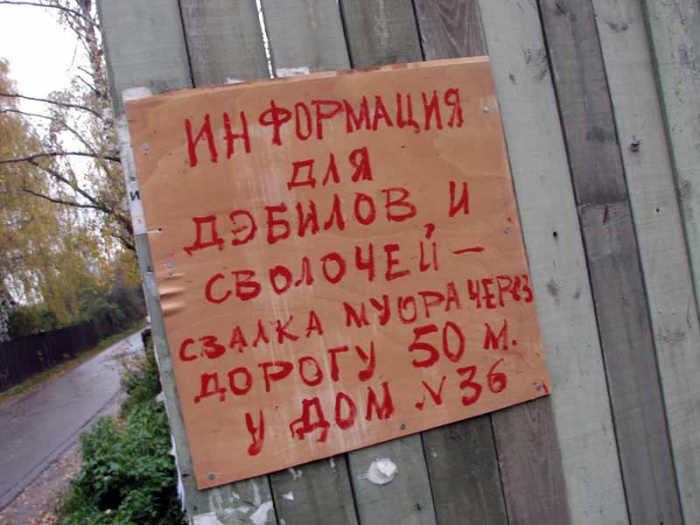 ИНФОРМАЦИЯ
ДЛЯ
ДЭБИЛОВ, И
СВОЛОЧЕЙ —
СВАЛКА МУОРА ЧЕРЕЗ
ДОРОГУ 50 М.
У ДОМ N 36